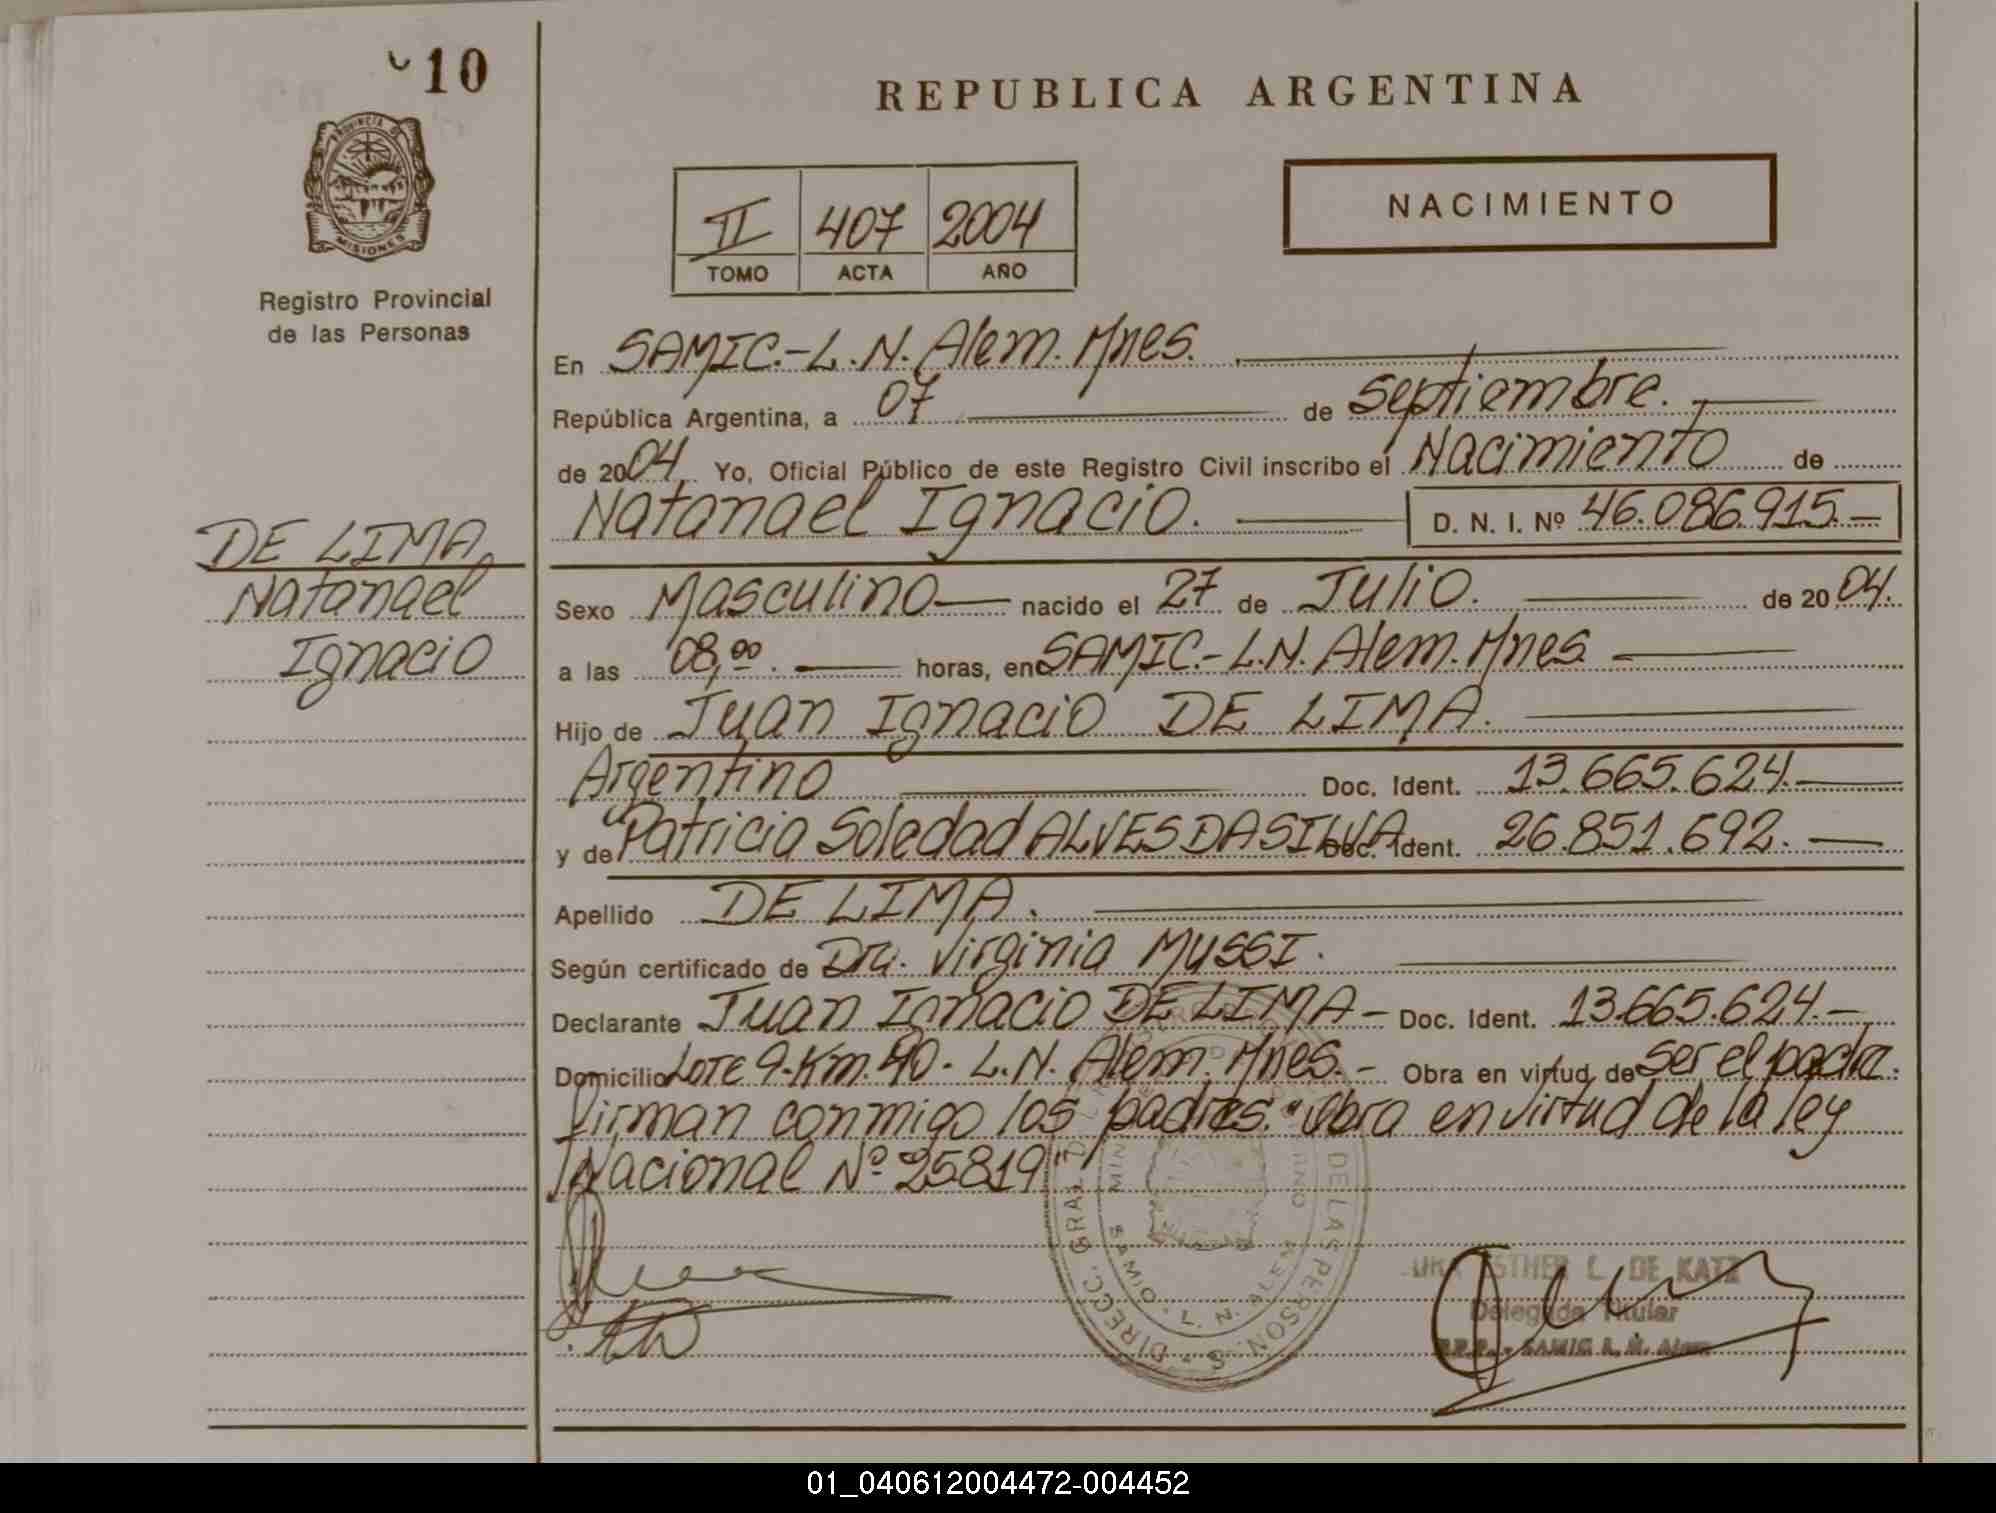 10
PROVINCIA DE
MISIONES
Registro Provincial
de las Personas
DE LIMA,
Natanael
Ignacio
REPUBLICA ARGENTINA
II 407 2004
TOMO ACTA AÑO
NACIMIENTO
En SAMIC.-L.N. Alem. Mnes.
República Argentina, a 07 de septiembre.
de 2004. Yo, Oficial Público de este Registro Civil inscribo el Nacimiento de
Natanael Ignacio. D. N. I. Nº 46.086.915.-
Sexo Masculino nacido el 27 de Julio. de 2004.
a las 08,00. horas, en SAMIC.-L.N. Alem. Mnes.
Hijo de Juan Ignacio DE LIMA.
Argentino Doc. Ident. 13.665.624.-
y de Patricia Soledad ALVES DA SILVA Doc. Ident. 26.851.692.
Apellido DE LIMA.
Según certificado de Dra. Virginia MUSSI.
Declarante Juan Ignacio DE LIMA - Doc. Ident. 13.665.624.-
Domicilio Lote 9-Km.40- L.N. Alem. Mnes.- Obra en virtud de ser el padre.
firman conmigo los padres. "obra en virtud de la ley
Nacional Nº 25819"
DIRECC. GRAL. DE LAS PERSONAS
L. N. ALEM
ESTHER L. DE KATZ
Delegada Titular
SAMIC L. N. Alem
01_040612004472-004452